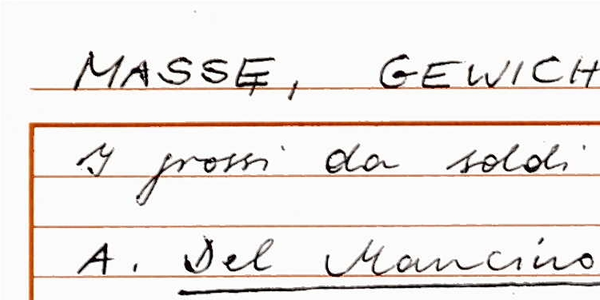 MASSE, GEWICH
I grossi da soldi
A. Del Mancino